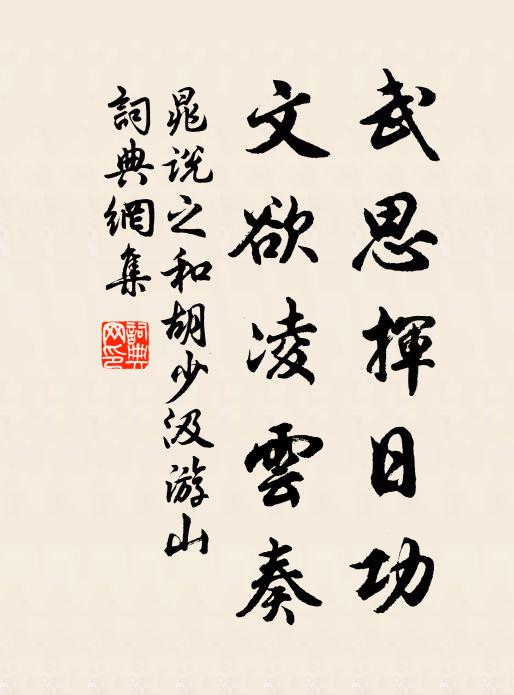 武思揮日功
文欲凌雲奏
晁說之和胡少汲游山
詞典網集
詞典網印